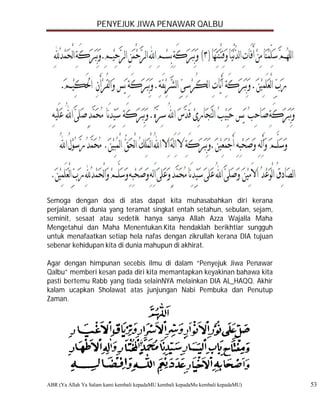 PENYEJUK JIWA PENAWAR QALBU
اللهم سلمنا من آفات الدنيا وفتنتها (٣) وببركة بسم الله الرحمن الرحيم. وببركة الحمد لله
رب العلمين. وببركة آيات الكرسي الشريفة. وببركة يس والقرآن الحكيم.
وببركة صاحب يس حبيب النجارى قدس الله سره. وببركة سيدنا محمد صلى الله عليه
وسلم وآله وصحبه أجمعين. وببركة لا اله الا الله الملك الحق المبين. محمد رسول الله
الصادق الوعد الامين وصلى الله على سيدنا محمد وعلى اله وصحبه وسلم والحمد لله رب العلمين.
Semoga dengan doa di atas dapat kita muhasabahkan diri kerana
perjalanan di dunia yang teramat singkat entah setahun, sebulan, sejam,
seminit, sesaat atau sedetik hanya sanya Allah Azza Wajalla Maha
Mengetahui dan Maha Menentukan.Kita hendaklah berikhtiar sungguh
untuk menafaatkan setiap hela nafas dengan zikrullah kerana DIA tujuan
sebenar kehidupan kita di dunia mahupun di akhirat.
Agar dengan himpunan secebis ilmu di dalam “Penyejuk Jiwa Penawar
Qalbu” memberi kesan pada diri kita memantapkan keyakinan bahawa kita
pasti bertemu Rabb yang tiada selainNYA melainkan DIA AL_HAQQ. Akhir
kalam ucapkan Sholawat atas junjungan Nabi Pembuka dan Penutup
Zaman.
اللهم
صل على نور الانوار وسر الاسرار وترياق الاغيار
ومفتاح باب اليسار سيدنا محمد المختار واله الاطهار
واصحابه الاخيار عدد نعم الله وافضاله
ABR (Ya Allah Ya Salam kami kembali kepadaMU kembali kepadaMu kembali kepadaMU)
53